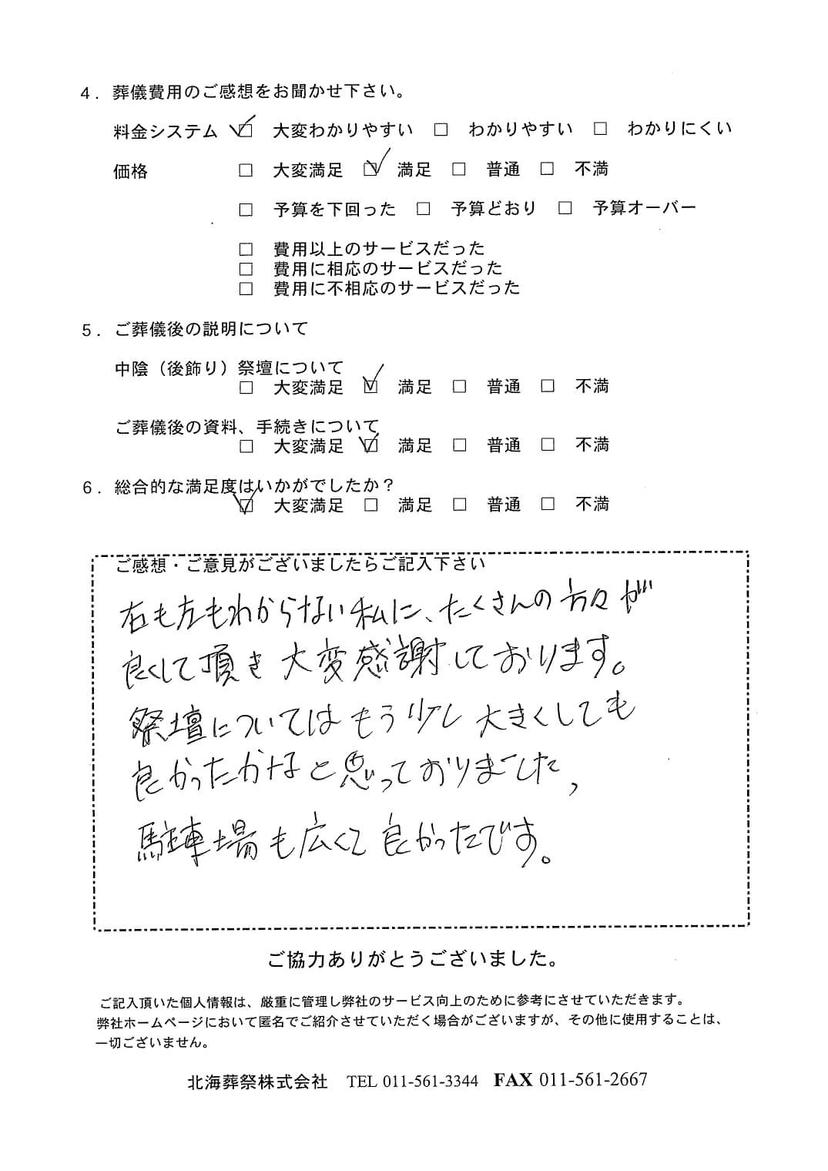 4．葬儀費用のご感想をお聞かせ下さい。
料金システム ☑ 大変わかりやすい □ わかりやすい □ わかりにくい
価格 □ 大変満足 ☑ 満足 □ 普通 □ 不満
□ 予算を下回った □ 予算どおり □ 予算オーバー
□ 費用以上のサービスだった
□ 費用に相応のサービスだった
□ 費用に不相応のサービスだった
5．ご葬儀後の説明について
中陰（後飾り）祭壇について
□ 大変満足 ☑ 満足 □ 普通 □ 不満
ご葬儀後の資料、手続きについて
□ 大変満足 ☑ 満足 □ 普通 □ 不満
6．総合的な満足度はいかがでしたか？
☑ 大変満足 □ 満足 □ 普通 □ 不満
ご感想・ご意見がございましたらご記入下さい
右も左もわからない私に、たくさんの方々が
良くして頂き大変感謝しております。
祭壇についてはもう少し大きくしても
良かったかなと思っておりました,
駐車場も広くて良かったです。
ご協力ありがとうございました。
ご記入頂いた個人情報は、厳重に管理し弊社のサービス向上のために参考にさせていただきます。
弊社ホームページにおいて匿名でご紹介させていただく場合がございますが、その他に使用することは、
一切ございません。
北海葬祭株式会社 TEL 011-561-3344 FAX 011-561-2667